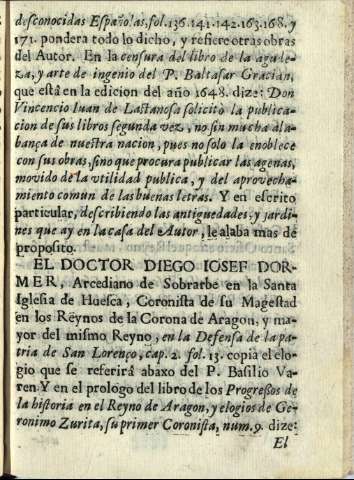 desconocidas Españolas, fol. 136. 141. 142. 163. 168. y
171. pondera todo lo dicho, y refiere otras obras
del Autor. En la censura del libro de la agude-
za, y arte de ingenio del P. Baltasar Gracian,
que està en la edicion del año 1648. dize: Don
Vincencio Iuan de Lastanosa solicitò la publica-
cion de sus libros segunda vez, no sin mucha ala-
bança de nuestra nacion, pues no solo la enoblece
con sus obras, sino que procura publicar las agenas,
movido de la vtilidad publica, y del aprovecha-
miento comun de las buenas letras. Y en escrito
particular, describiendo las antiguedades, y jardi-
nes que ay en la casa del Autor, le alaba mas de
proposito.
EL DOCTOR DIEGO IOSEF DOR-
MER, Arcediano de Sobrarbe en la Santa
Iglesia de Huesca, Coronista de su Magestad
en los Reynos de la Corona de Aragon, y ma-
yor del mismo Reyno, en la Defensa de la pa-
tria de San Lorenço, cap. 2. fol. 13. copia el elo-
gio que se referirà abaxo del P. Basilio Va-
ren Y en el prologo del libro de los Progressos de
la historia en el Reyno de Aragon, y elogios de Ge-
ronimo Zurita, su primer Coronista, num. 9. dize:
El